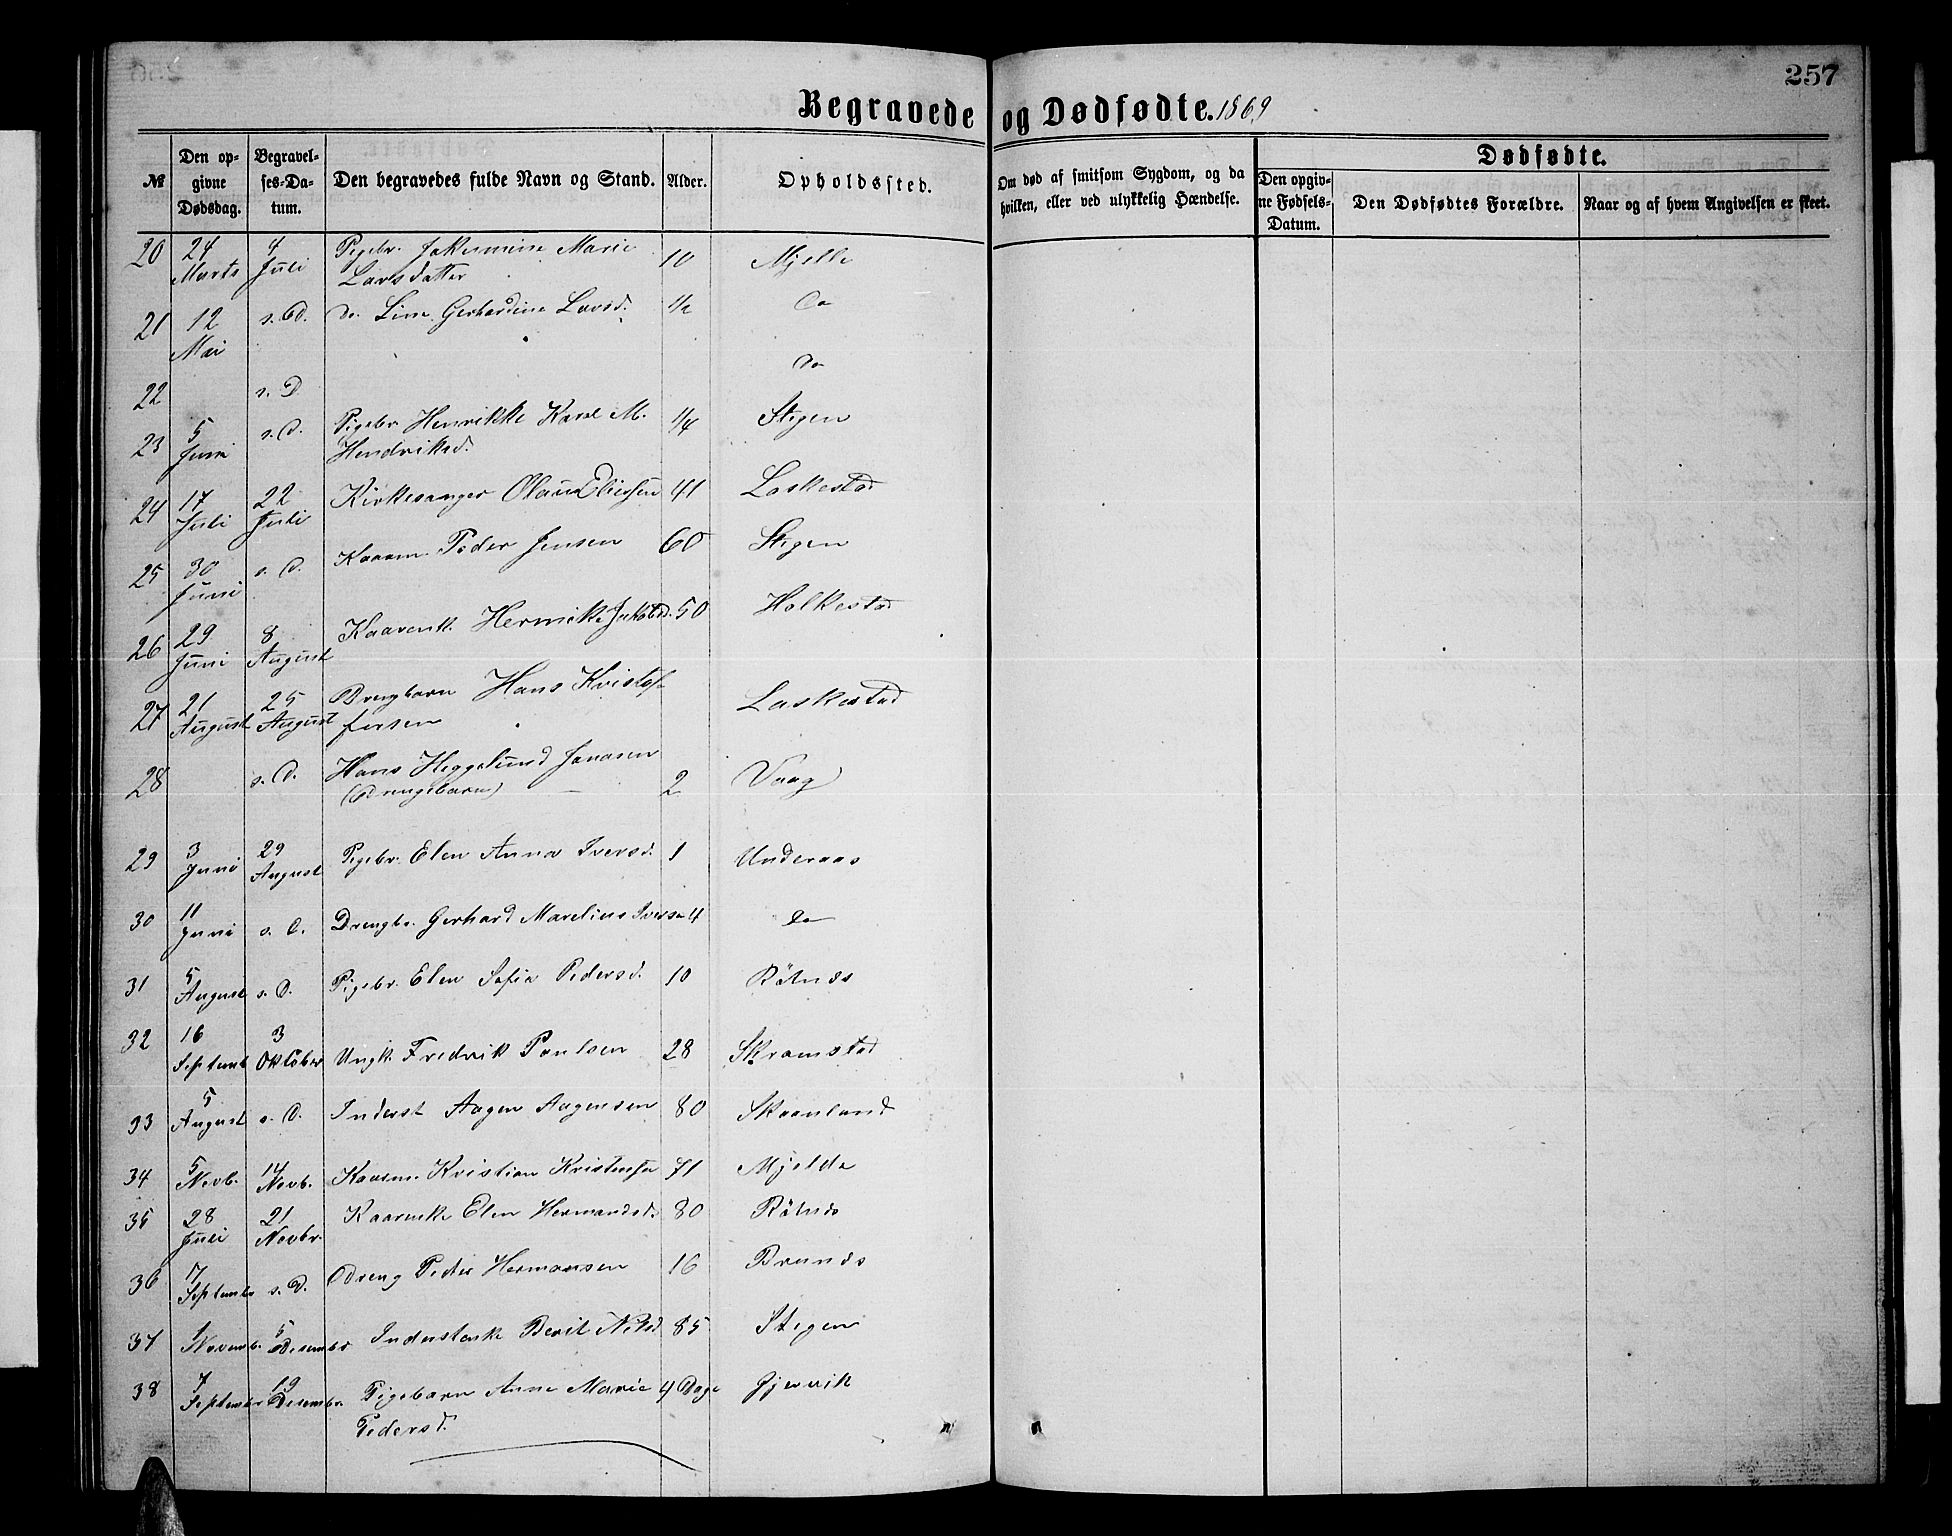 257
Begravede og Dødfødte. 1869
№
Den opgivne Dødsdag.
Begravelses-Datum.
Den begravedes fulde Navn og Stand.
Alder.
Opholdssted.
Om død af smitsom Sygdom, og da hvilken, eller ved ulykkelig Hændelse.
Dødfødte.
Den opgivne Fødsels-Datum.
Den Dødfødtes Forældre.
Naar og af hvem Angivelsen er skeet.
20 24 Marts 4 Juli Pigebr. Jakermine Marie Larsdatter 10 Mjelle
21 12 Mai s. D. do. Line Gerhardine Larsd. 1/2 do
22 s. D. do
23 5 Juni s. D. Pigebr Henrikke Karel M. Hendriksd. 1/4 Stegen
24 17 Juli 22 Juli Kirkesanger Olaus Eliessen 41 Laskestad
25 30 Juni s. D. Kaarm. Peder Jensen 60 Stegen
26 29 Juni 8 August Kaarenk. Hermike Jakobsd. 50 Holkestad
27 21 August 25 August Drengbarn Hans Kristoffersen Laskestad
28 s. D. Hans Heggelund Jonasen (Drengebarn) 2 Vaag
29 3 Juni 29 August Pigebr. Elen Anna Iversd. 1 Underaas
30 11 Juni s. D. Drengbr. Gerhard Marelius Iversen 4 do
31 5 August s. D. Pigebr. Elen Sofia Pedersd. 10 Rötnes
32 16 Septemb 3 Oktober Ungk. Fredrik Paulsen 28 Skramstad
33 5 August s. D. Inderst Aagen Aagensen 80 Skaanland
34 5 Novb. 14 Novb. Kaarm. Kristian Kristensen 71 Mjelde
35 28 Juli 21 Novbr. Kaarenke Elen Hermandsd. 80 Rötnes
36 17 Septembr s. D. Dreng Peder Hermansen 16 Brunes
37 1 Novemb. 5 Desembr Inderstenke Berit Nilsd 85 Stegen
38 7 Septembr 19 Desembr. Pigebarn Anne Marie Pedersd. 4 Dage Gjervik